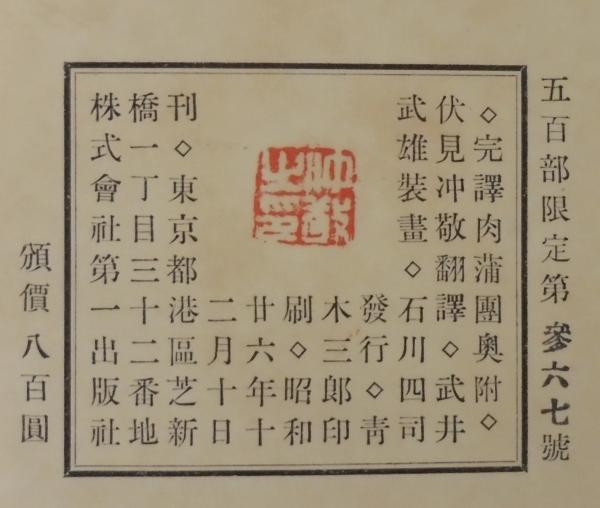 五百部限定第參六七號
◇完譯肉蒲團奧附◇
伏見冲敬翻譯◇武井
武雄裝畫◇石川四司
發行◇靑
木三郎印
刷◇昭和
廿六年十
二月十日
刊◇東京都港區芝新
橋一丁目三十二番地
株式會社第一出版社
頒價八百圓
冲敬之印